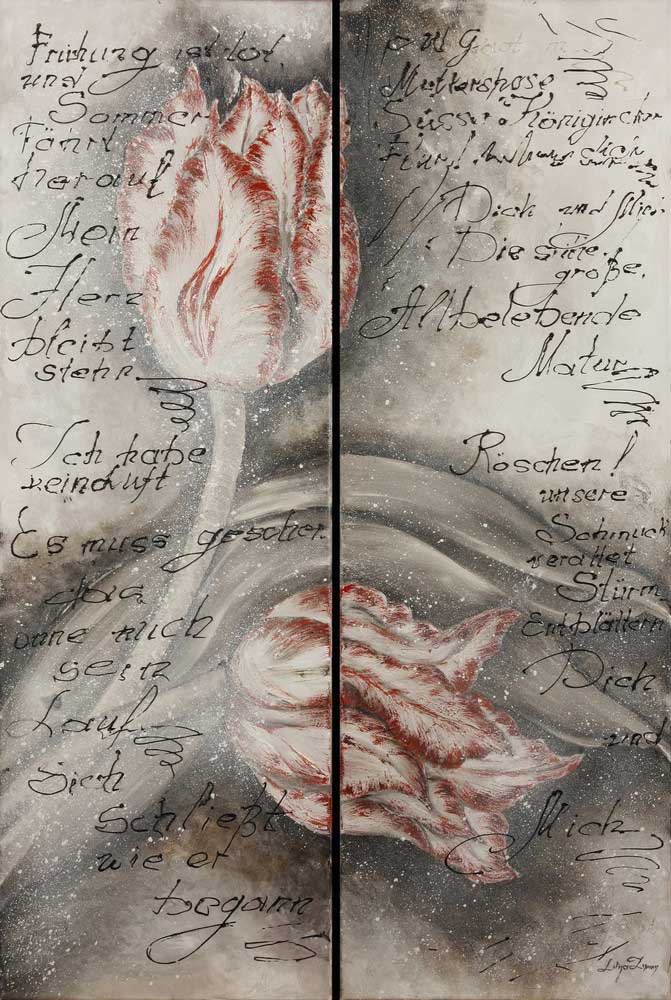 Frühung ist tot
und
Sommer
Fährt
herauf
Mein
Herz
bleibt
stehn
Ich habe
Es muss gescher
das
onne mich
sein
Lauf
Sich
schließt
wie er
begann
Muttershose
Süsse
Dich und Mich
Die süße,
große,
Allbelebende
Matur
Röschen!
unsere
Schmuck
veraltet
Stürm
Entblättern
Dich
und
Mich